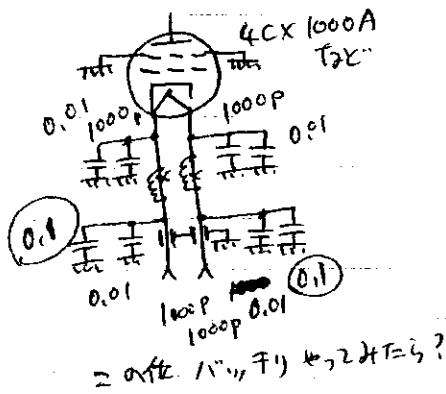 4CX1000A
など
0.01
1000P
1000P
0.01
0.1
0.01
1000P
1000P
0.01
0.1
この位 バッチリ やってみたら?